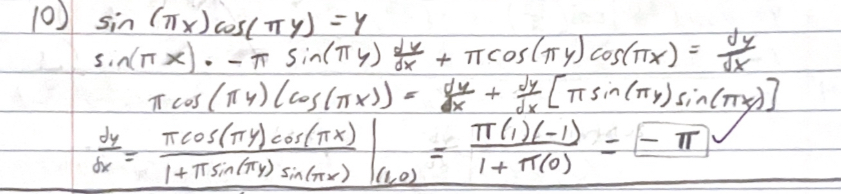 10) sin (πx) cos(πy) = y
sin(πx) · -π sin(πy) dy/dx + π cos(πy) cos(πx) = dy/dx
π cos(πy)(cos(πx)) = dy/dx + dy/dx [π sin(πy) sin(πx)]
dy/dx = π cos(πy) cos(πx) / 1 + π sin(πy) sin(πx) |(1,0) = π(1)(-1) / 1 + π(0) = -π ✓